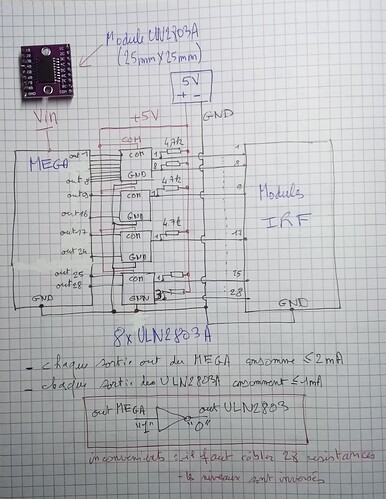 Module ULN2803A
(25mm x 25mm)
5V
+ -
Vin
+5V
GND
COM
4,7k
out 1
MEGA
COM
1
1
8
8
out 8
GND
4,7k
out 9
9
COM
Module
out 16
GND
IRF
out 17
4,7k
COM
17
out 24
GND
out 25
COM
25
out 28
GND
28
GND
GND
8x ULN2803A
- chaque sortie out du MEGA consomme ≤ 2mA
- chaque sortie du ULN2803A consomment ≤ 1mA
out MEGA
out ULN2803
"1"
"0"
inconvenients : il faut câbler 28 resistances
- les niveaux sont inversés